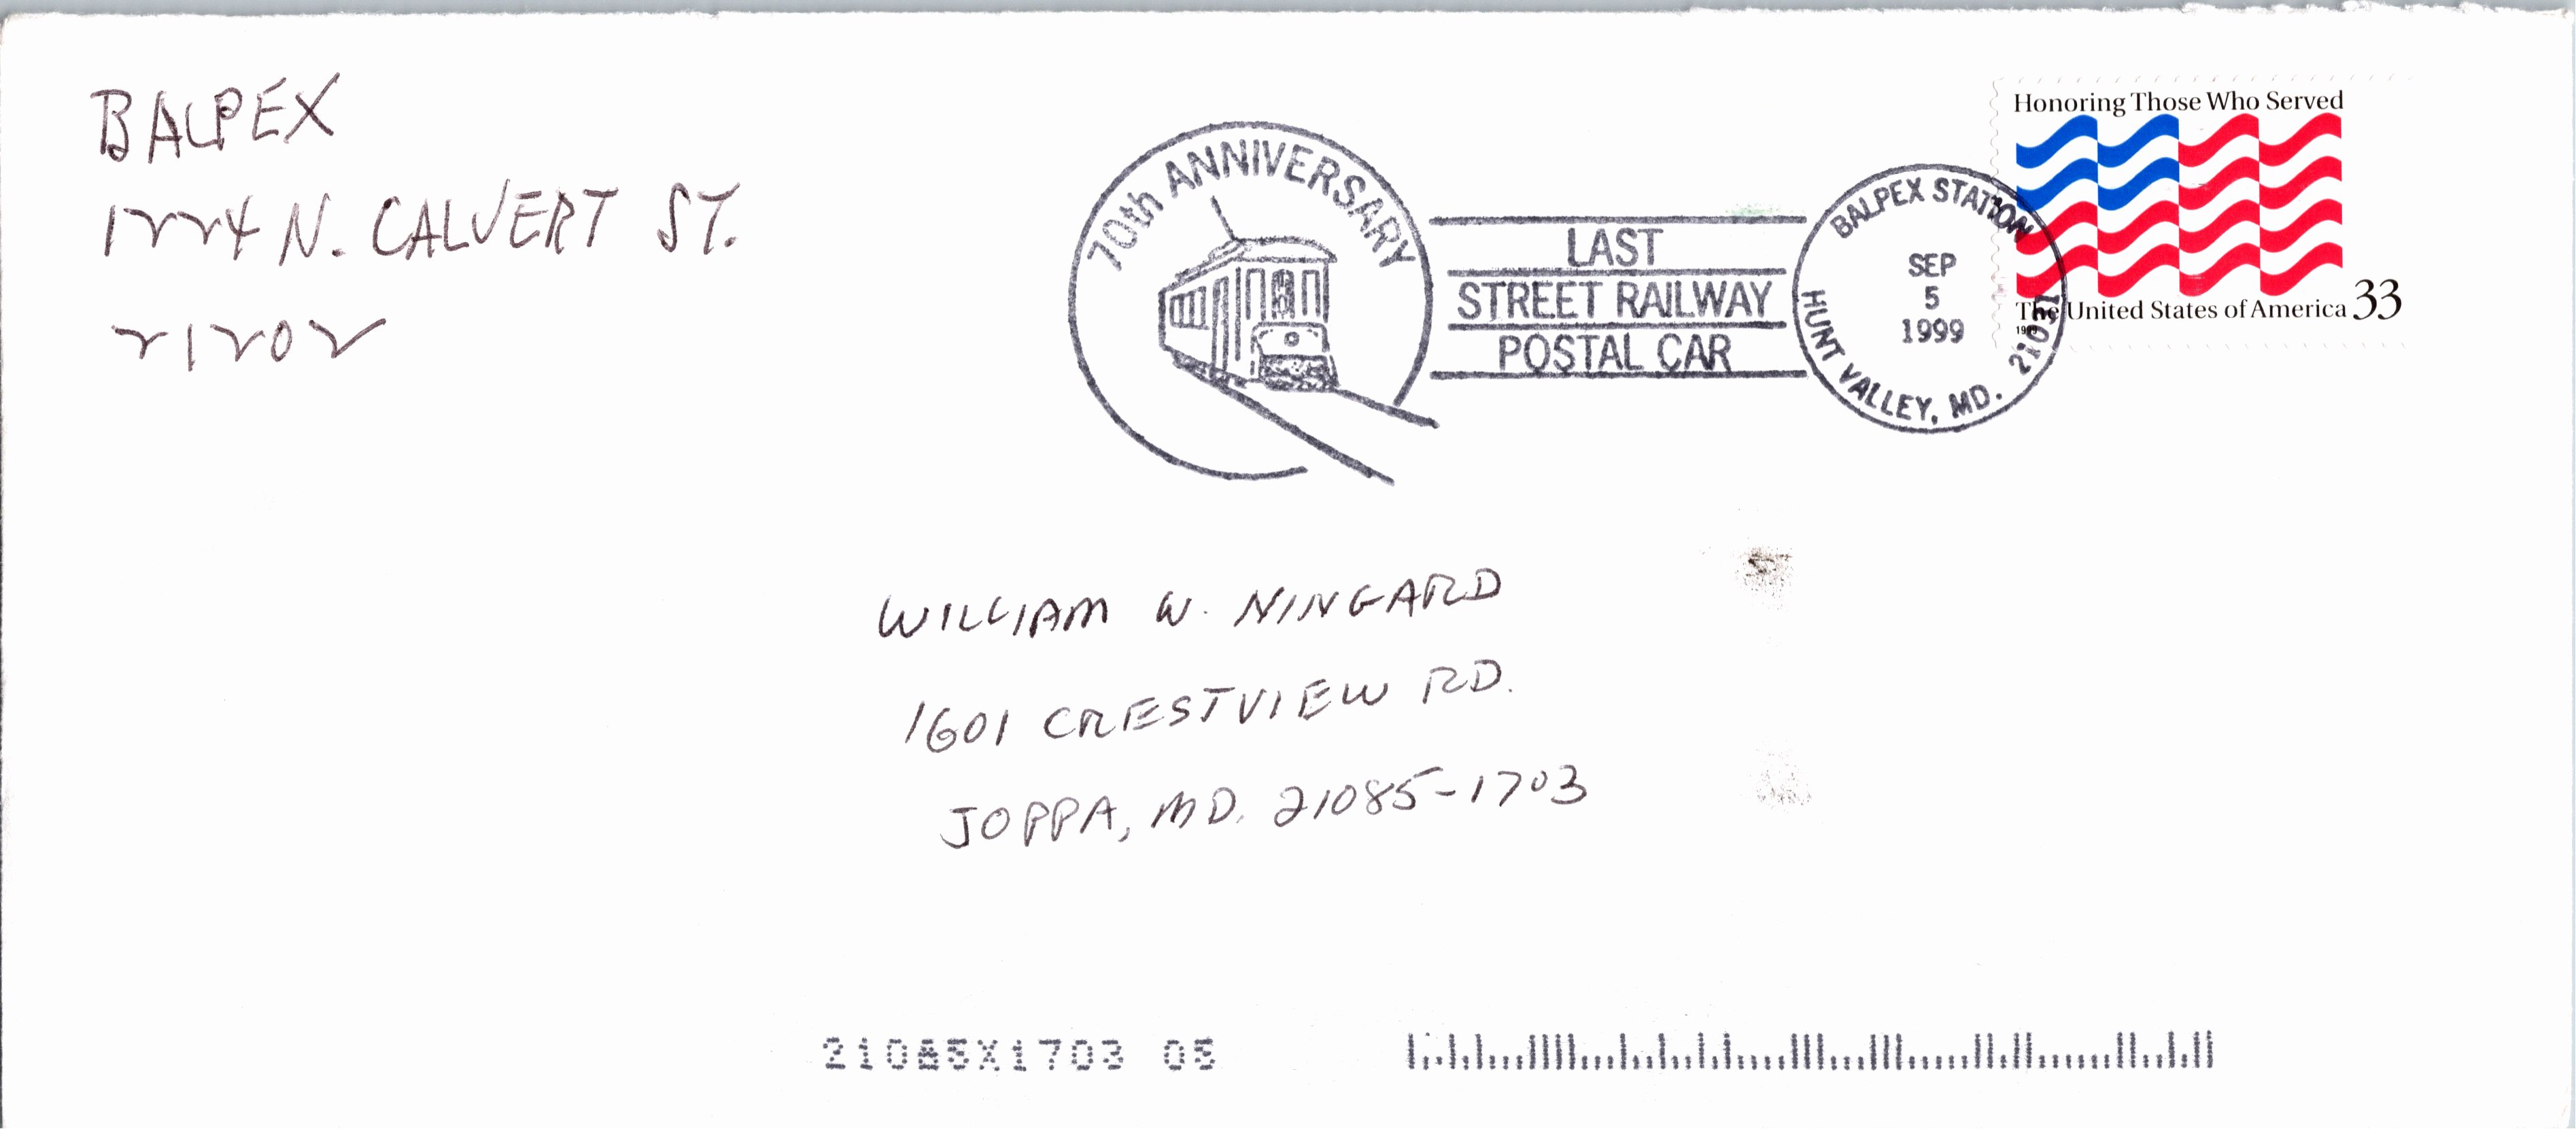 BALPEX
1224 N. CALVERT ST.
21202
70th ANNIVERSARY
LAST
STREET RAILWAY
POSTAL CAR
BALPEX STATION
SEP
5
1999
HUNT VALLEY, MD. 21031
Honoring Those Who Served
The United States of America 33
1999
WILLIAM W. NINGARD
1601 CRESTVIEW RD.
JOPPA, MD. 21085-1703
21085X1703 05